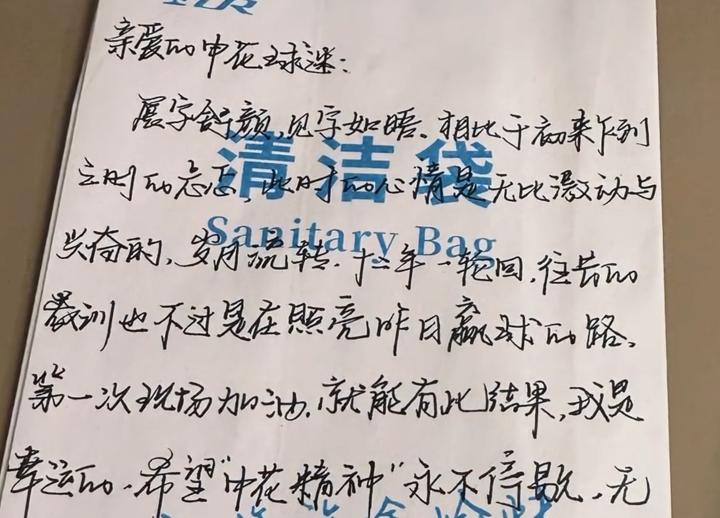 亲爱的中花球迷:
展字舒颜,见字如晤。相比于初来乍到
之时的忐忑,此时的心情是无比激动与
清洁袋
兴奋的,岁月流转,十二年一轮回,往昔的
Sanitary Bag
教训也不过是在照亮昨日赢球的路。
第一次现场加油,就能有此结果,我是
幸运的。希望"中花精神"永不停歇,无